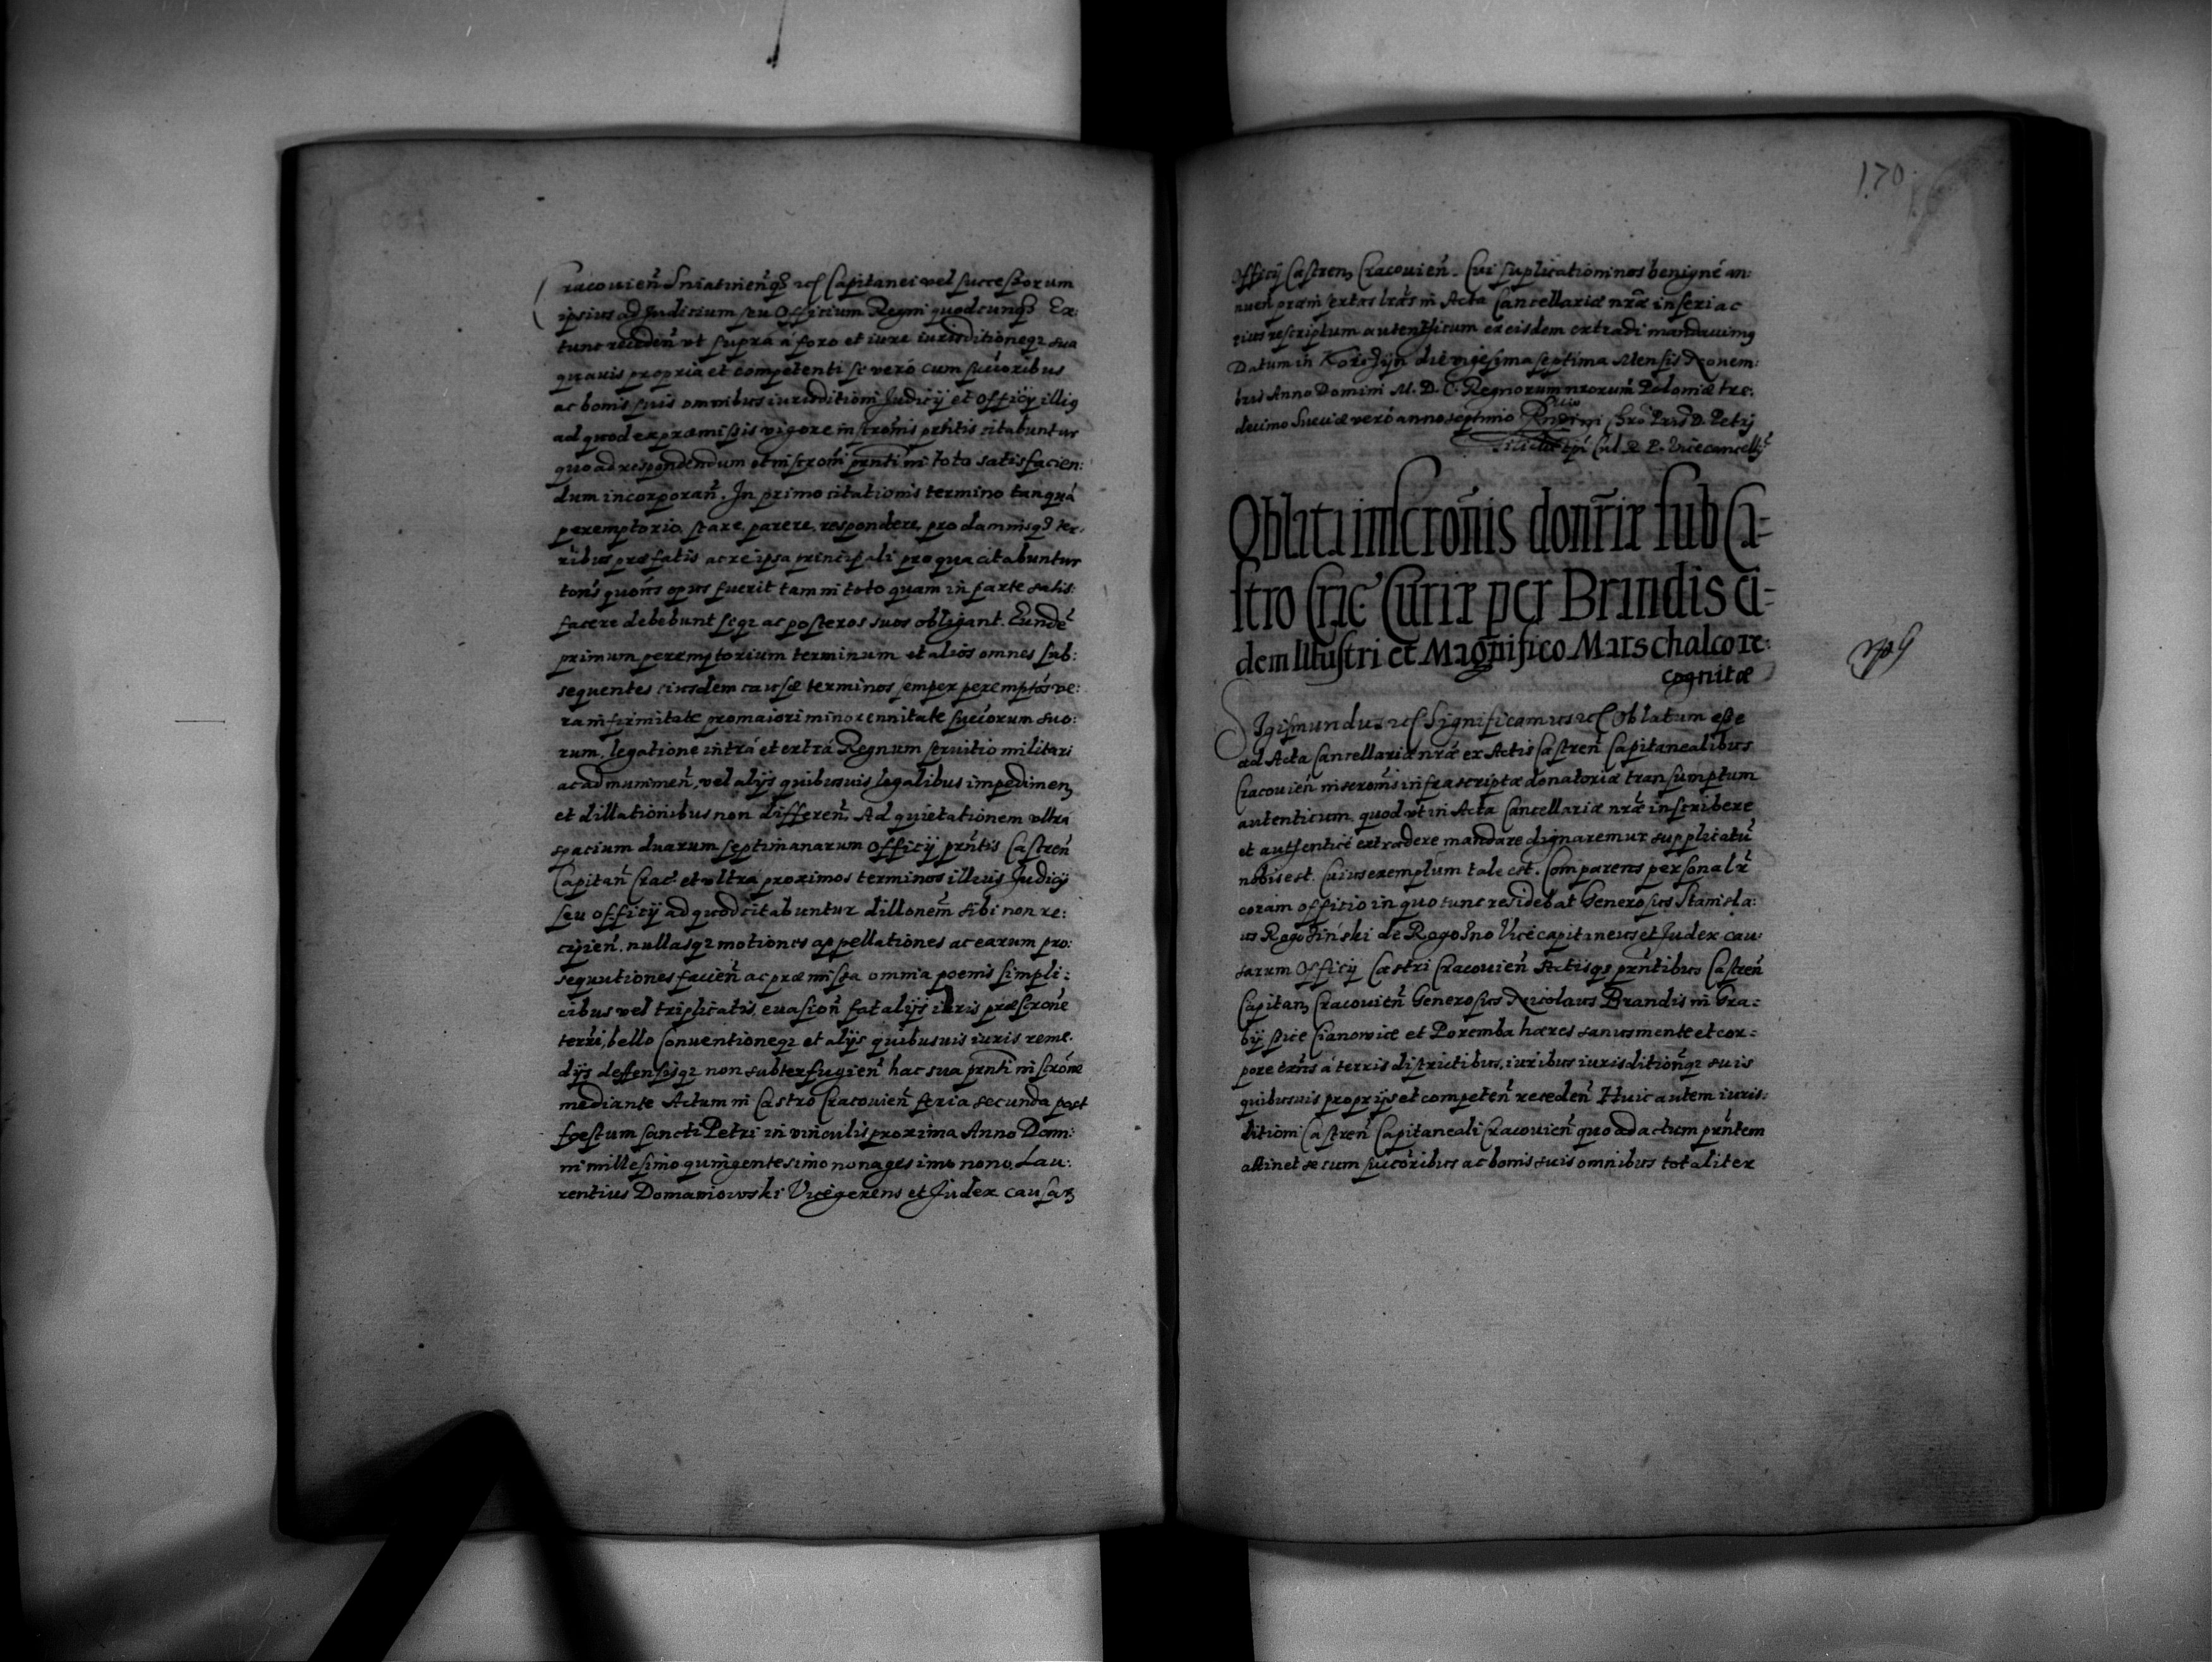 Cracouien̄ Sniatinen̄qȝ etc Capitanei vel successorum
ipsius ad Juditium seu Officium Regni quodcunqȝ Ex:
tunc receden̄ vt supra á foro et iure iurisditioneqȝ sua
quauis propria et competenti se veró cum succoribus
ac bonis suis omnibus iurisditioni Judicij et Officij illiq
ad quod ex præmissis vigore inscrōnis prn̄tis citabuntur
quo ad respondendum et inscrōni prn̄ti in toto satisfacien:
dum incorporan̄. In primo citationis termino tanquá
peremptorio, stare, parere, respondere, pro damnisqȝ ter,
ribus præfatis ac re ipsa principali pro qua citabuntur
toñs quoñs opus fuerit tam in toto quam in parte satis:
facere debebunt seqȝ ac posteros suos obligant. Eundē
primum peremptorium terminum et alios omnes sub:
sequentes eiusdem causæ terminos semper peremptós ve:
ram firmitate pro maiori minorennitate succorum suo:
rum, legatione intrá et extrá Regnum seruitio militari
ac ad munimen̄, vel alijs quibusuis legalibus impedimenȝ
et dillationibus non differen̄. Ad quietationem vltra
spacium duarum septimanarum Officij prn̄tis Castren̄
Capitan̄ Crac. et vltra proximos terminos illeius Judicij
seu officij ad quod citabuntur dillonem̄ sibi non re:
cipien̄. nullasqȝ motiones appellationes ac earum pro:
sequutiones facien̄ ac præmissa omnia poenis simpli:
cibus vel triplicatis, euasion̄ fatalijs iuris præscrōne
terri, bello Conuentioneqȝ et alijs quibusuis iuris reme.
dijs deffensisqȝ non subterfugien̄ hac sua prn̄ti inscrōne
mediante Actum in Castro Cracouien̄ feria secunda post
foestum sancti Petri in vinculis proxima Anno Dom:
ni millesimo quingentesimo nonagesimo nono. Lau:
rentius Domaniowski Vicegerens et Judex causaȝ
170
Officij Castrenȝ Cracouien̄. Cui suplicationi nos benigné an:
nuen̄ præinsertas lrās in Acta Cancellariæ nrǣ inseri ac
eius rescriptum autenthicum ex eisdem extradi mandauimq
Datum in die vigesima septima Mensis Nouem:
bris Anno Domini M. D. C. Regnorum nrorum̄ Poloniæ trc.
decimo Sueciæ veró anno septimo Rndmi Chro Pris D. Petri
epi Cul R P. Vicecancellȳ
Oblata inscron̄is donr̄ia sub Ca-
stro Crac Curia per Brandis ei-
dem Illustri et Magnifico Marschalco re:
cognitæ
Sigismundus etc Significamus etc Oblatum esse
ad Acta Cancellariæ nrǣ ex Actis Castren̄ Capitanealibus
Cracouien̄ inscrōnis infrascriptæ donatoriæ transumptum
autenticum, quod vt in Acta Cancellariæ nrǣ inscribere
et authenticé extradere mandare dignaremur supplicatū
nobis est. Cuius exemplum tale est. Comparens personalr̄
coram officio in quo tunc residebat Generosus Stanisla:
us Rogoziński de Rogozno Vicecapitaneus et Judex cau:
sarum Officij Castri Cracouien̄ Actisqȝ prn̄tibus Castren̄
Capitanȝ Cracouien̄ Generosus Nicolaus Brandis in Gra:
bÿ stice Cianowice et Poremba hæres sanus mente et cor:
pore exn̄s á terris districtibus, iuribus iurisdition̄qȝ suis
quibusuis proprijs et competen̄ receden̄ Huic autem iuris:
ditioni Castren̄ Capitaneali Cracouien̄ quo ad actum prn̄tem
attinet se cum succōribus ac bonis suis omnibus totaliter